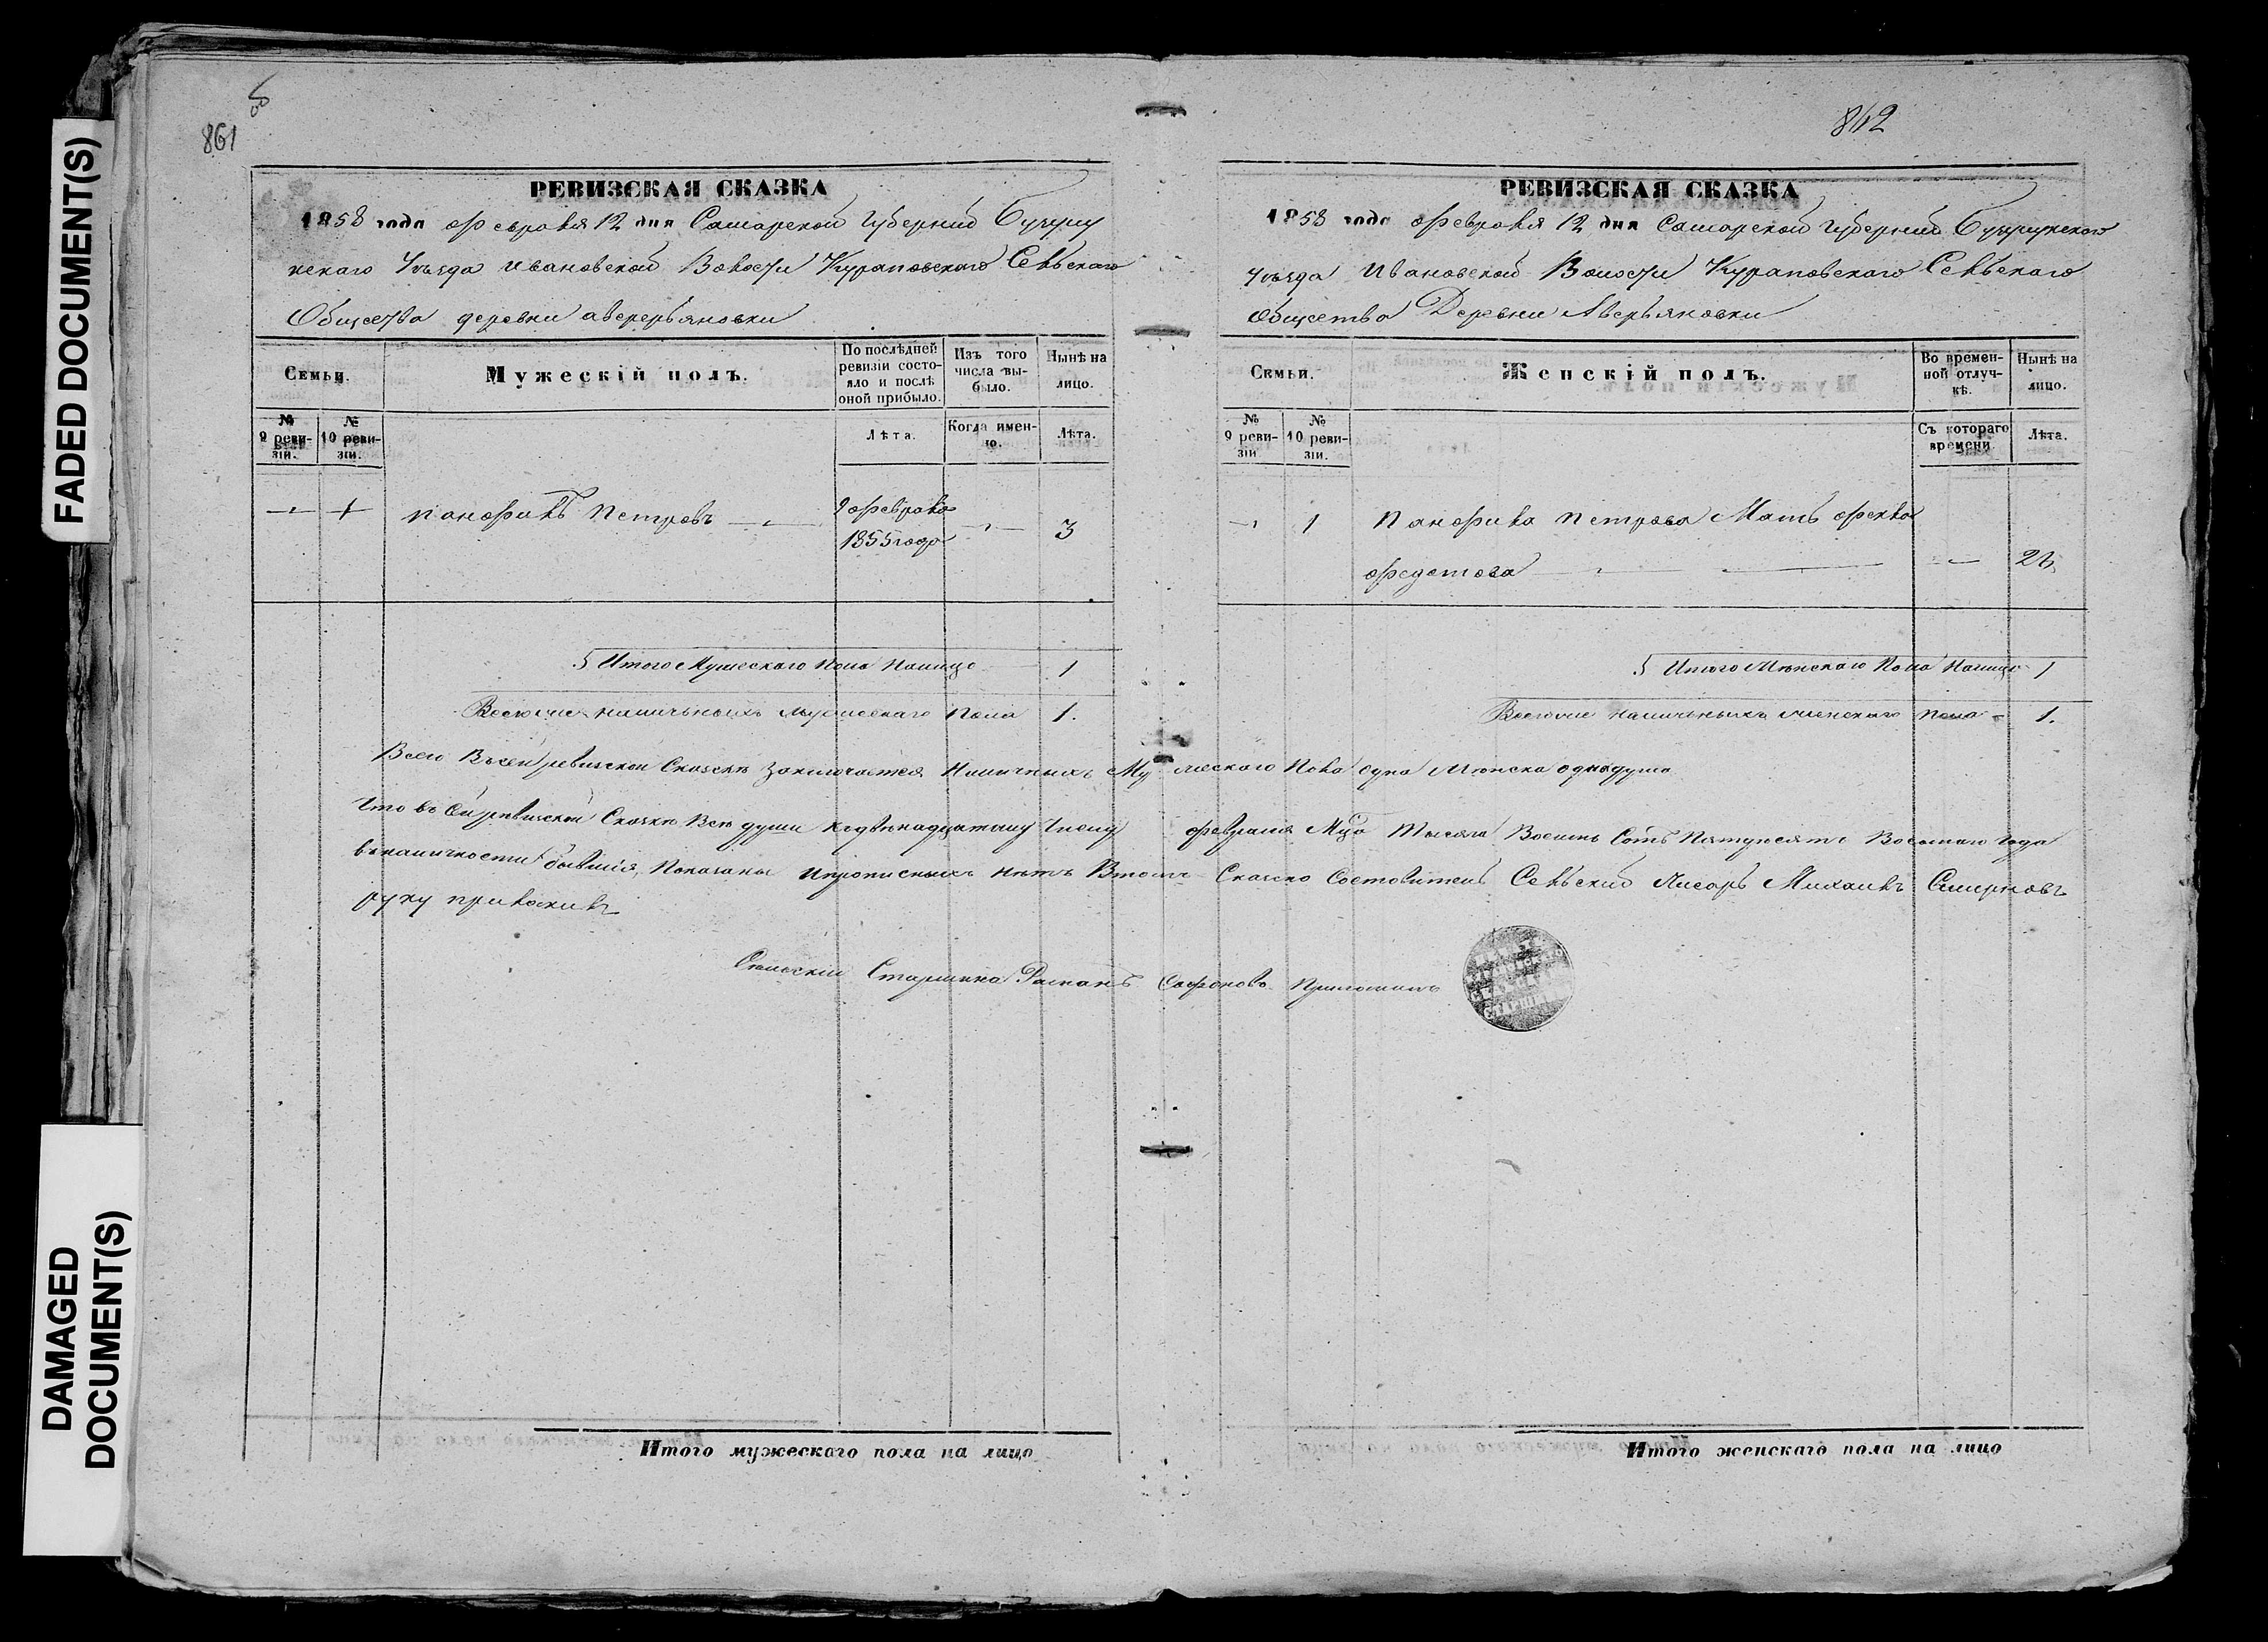 FADED DOCUMENT(S)
DAMAGED
DOCUMENT(S)
об
861
РЕВИЗСКАЯ СКАЗКА
1858 года февраля 12 дня Самарской губернии Бузулу
кскаго Уѣзда Ивановской Волости Кураповскаго Сельскаго
Общества деревни аверерьяновки
Семьи.
Мужескій полъ.
По послѣдней
ревизіи состо-
яло и послѣ
оной прибыло.
Изъ того
числа вы-
было.
Нынѣ на
лицо.
№
9 реви-
зіи.
№
10 реви-
зіи.
Лѣта.
Когда имен-
но.
Лѣта.
1 Панфилъ Петровъ
9 феврала
1855 года
3
Итого Мужескаго пола налицо 1
Всего наличныхъ мужескаго пола 1.
862
РЕВИЗСКАЯ СКАЗКА
1858 года февраля 12 дня Самарской губерніи Бузулукскаго
Уѣзда Ивановской Волости Кураповскаго Сельскаго
общества Деревни Аверьяновки
Семьи.
Женскій полъ.
Во времен-
ной отлуч-
кѣ.
Нынѣ на
лицо.
№
9 реви-
зіи
№
10 реви-
зіи.
Съ котораго
времени
Лѣта.
1 Панфила Петрова Мать фекла
федотова 26
Итого Женскаго Пола Налицо 1
наличныхъ женскаго пола 1.
Всего Въ сей ревизской Сказкѣ заключается Наличныхъ Мужескаго Пола одна Женска одна душа
Что въ сей ревизской Сказкѣ Всѣ души къ двѣнадцатому Числу февраля Мца Тысяча Восемь Сотъ Пятдесятъ Восьмаго Года
въ наличности бывшія, Показаны и прописныхъ нѣтъ Втомъ Сказко Составитель Сельский Писарь Михаилъ Смирновъ
руку приложилъ
Сельскій Старшина Романъ Сафроновъ Приложилъ
Итого мужескаго пола на лицо
Итого женскаго пола на лицо